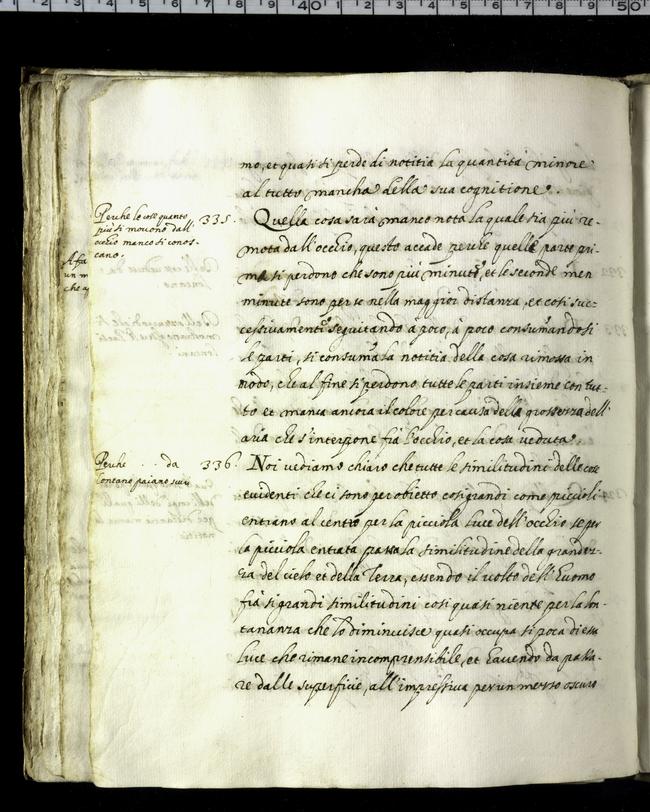 mo, et quasi si perde di notitia la quantità minore
al tutto mancha della sua cognitione.
Perche le cose quanto
più si movono dall'
occhio manco si conos-
cano.
335. Quella cosa sarà manco nota la quale sia più re-
mota dall'occhio, questo accade perche quelle parte pri-
ma si perdono che sono più minute, et le seconde men
minute sono perse nella maggior distanza, et cosi suc-
cessivamente seguitando à poco, à poco consumandosi
le parti, si consuma la notitia della cosa rimossa in
modo, che al fine si perdono tutte le parti insieme con tut-
to et manca ancora il colore per causa della grossezza dell'
aria che s'interpone frà l'occhio, et la cosa veduta.
Perche . . da
lontano paiane
336. Noi vediamo chiaro che tutte le similitudini delle cose
evidenti che ci sono per obietto cosi grandi come piccioli
entrano al centro per la picciola luce dell'occhio se per
la picciola entrata passa la similitudine della grandez-
za del cielo et della Terra, essendo il volto dell'huomo
frà si grandi similitudini cosi quasi niente per la lon-
tananza che lo diminuisce quasi occupa si poca di essa
luce che rimane incomprensibile, et havendo da passa-
re dalle superficie, all'impressiva per un mezzo oscuro